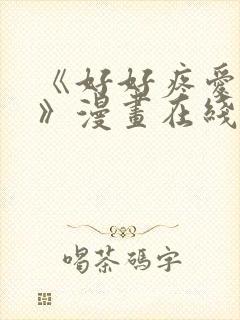 《好好疼愛
》漫畫在綫
喝茶碼字